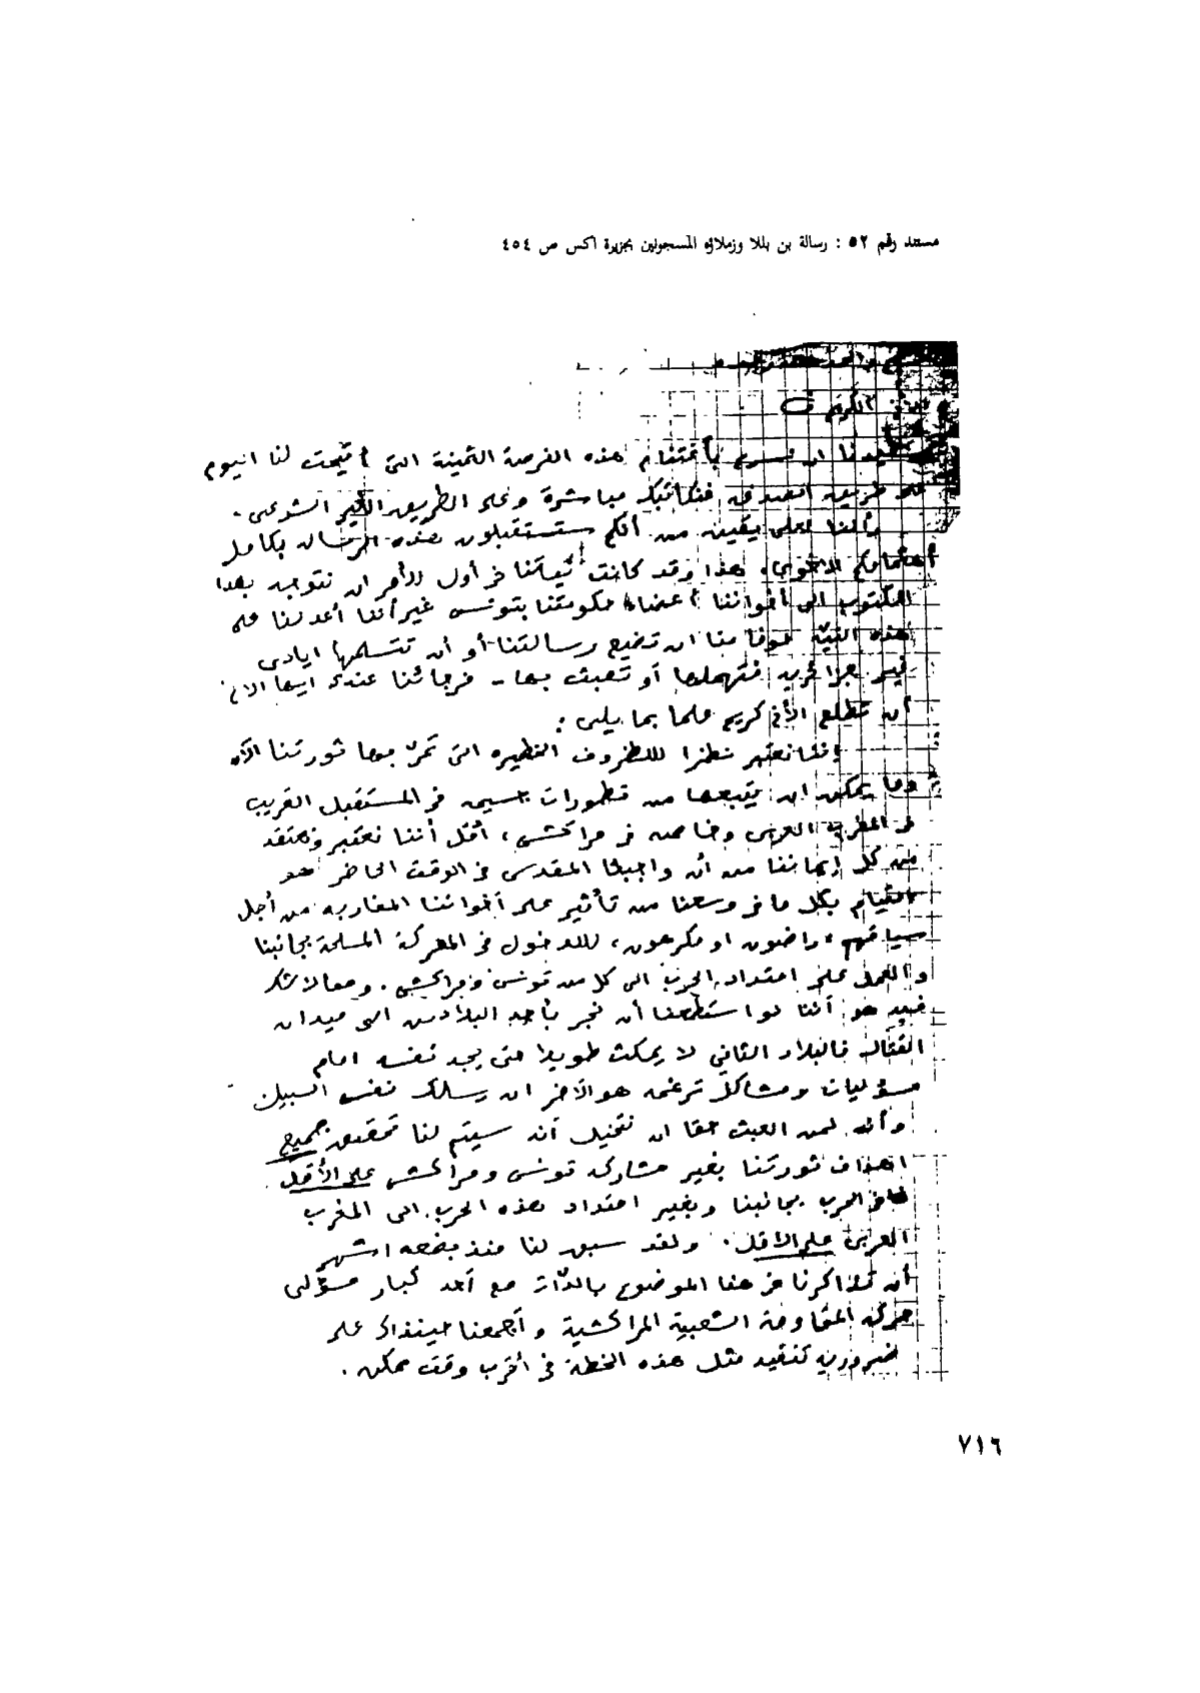 مستند رقم ٥٢ : رسالة بن بللا وزملاؤه المسجونين بجزيرة اكس ص ٤٥٤
الكريم
ان نسرع بأغتنام هذه الفرصة الثمينة التى أتيحت لنا اليوم
على طريق فنكاتبك مباشرة وعلى الطريق الشرعى.
وأننا لعلى يقين من أنكم ستستقبلون هذه الرسالة بكامل
أهتمامكم الاخوى. هذا وقد كانت نيتنا فى أول الأمر ان نتوجه بهذا
المكتوب الى أخواننا أعضاء حكومتنا بتونس غير أننا أعدلنا على
هذه النية خوفا منا ان تضيع رسالتنا أو أن تتسلمها ايادى
غير جزائرية فتهملها أو تعبث بها - فرجائنا عندك ايها الاخ
أن تطلع الأخ كريم علما بما يلى :
إننا نعتبر نظرا للظروف الخطيره التى تمرّ بها ثورتنا الآن
وما يمكن ان يتبعها من تطورات جسيمه فى المستقبل القريب
فى المغرب العربى وخاصه فى مراكش ، أقل أننا نعتبر ونعتقد
من كل إيماننا من أن واجبنا المقدس فى الوقت الحاضر هو
القيام بكل ما فى وسعنا من تأثير على أخواننا المغاربه من أجل
سياقهم ، راضون او مكرهون ، للدخول فى المعركة المسلحة بجانبنا
والعمل على امتداد الحرب الى كل من تونس ومراكش . ومما لا شك
فيه هو أننا لو استطعنا أن نجر بأحد البلادين الى ميدان
القتال فالبلاد الثاني لا يمكث طويلا حتى يجد نفسه امام
مسؤليات ومشاكل ترغمه هو الآخر ان يسلك نفس السبيل
وأنه لمن العبث حقا ان نتخيل أنه سيتم لنا تحقيق جميع
اهداف ثورتنا بغير مشاركة تونس ومراكش على الأقل
فى الحرب بجانبنا وبغير امتداد هذه الحرب الى المغرب
العربى على الاقل . ولقد سبق لنا منذ بضعه اشهر
أن تذاكرنا فى هذا الموضوع بالذّات مع أحد كبار مسؤلى
حركة المقاومة الشعبية المراكشية و أجمعنا حينذاك على
ضرورية تنفيد مثل هذه الخطة فى أقرب وقت ممكن .
٧١٦